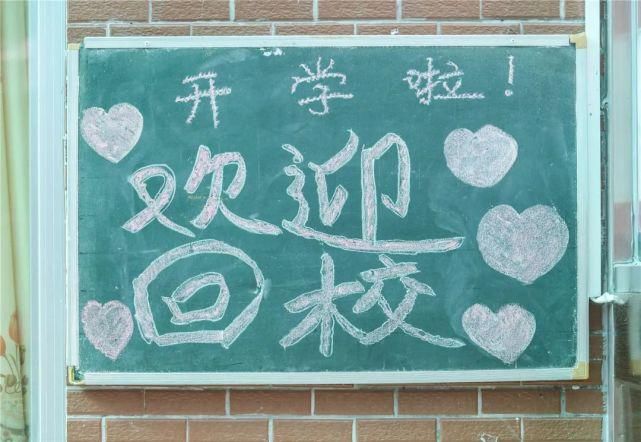 开学啦！
欢迎
回校